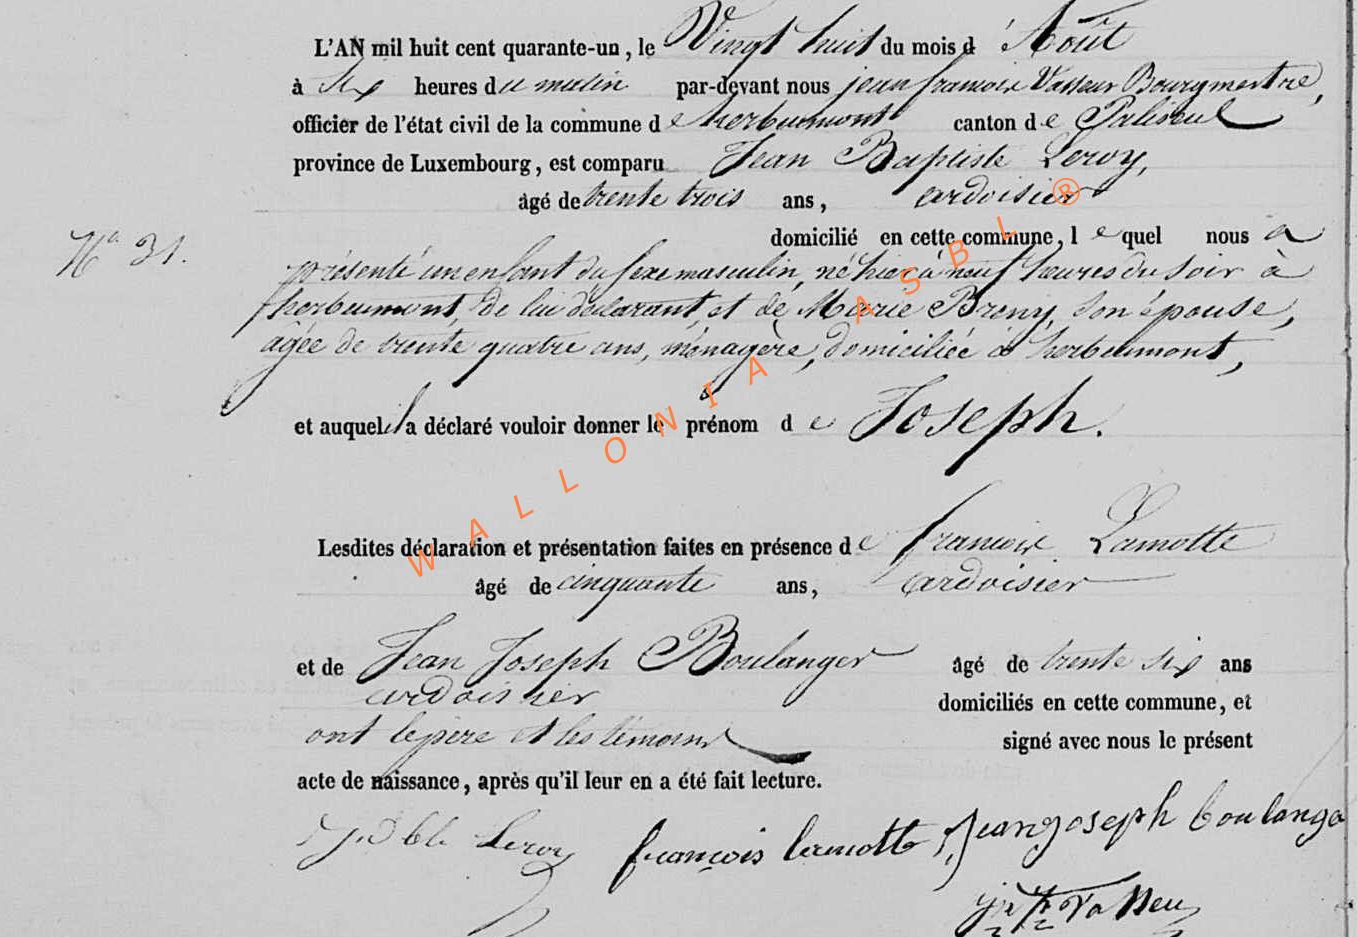 L'AN mil huit cent quarante-un, le Vingt huit du mois d'Août
à six heures du matin par-devant nous jean francois Vasseur Bourgmestre,
officier de l'état civil de la commune de herbeumont canton de Paliseul
province de Luxembourg, est comparu Jean Baptiste Leroy,
âgé de trente trois ans, ardoisier
domicilié en cette commune, lequel nous a
N° 31.
présenté un enfant du sexe masculin, né hier à neuf heures du soir à
herbeumont, de lui déclarant, et de Marie Breny, son épouse,
âgée de trente quatre ans, ménagère, domiciliée à herbeumont,
et auquel il a déclaré vouloir donner le prénom de Joseph.
Lesdites déclaration et présentation faites en présence de francoix Lamotte
âgé de cinquante ans, ardoisier
et de Jean Joseph Boulanger âgé de trente six ans
ardoisier domiciliés en cette commune, et
ont le père et les témoins signé avec nous le présent
acte de naissance, après qu'il leur en a été fait lecture.
Leroy françois lamotte jean joseph boulange
Vasseu
WALLONIA ASBL ®